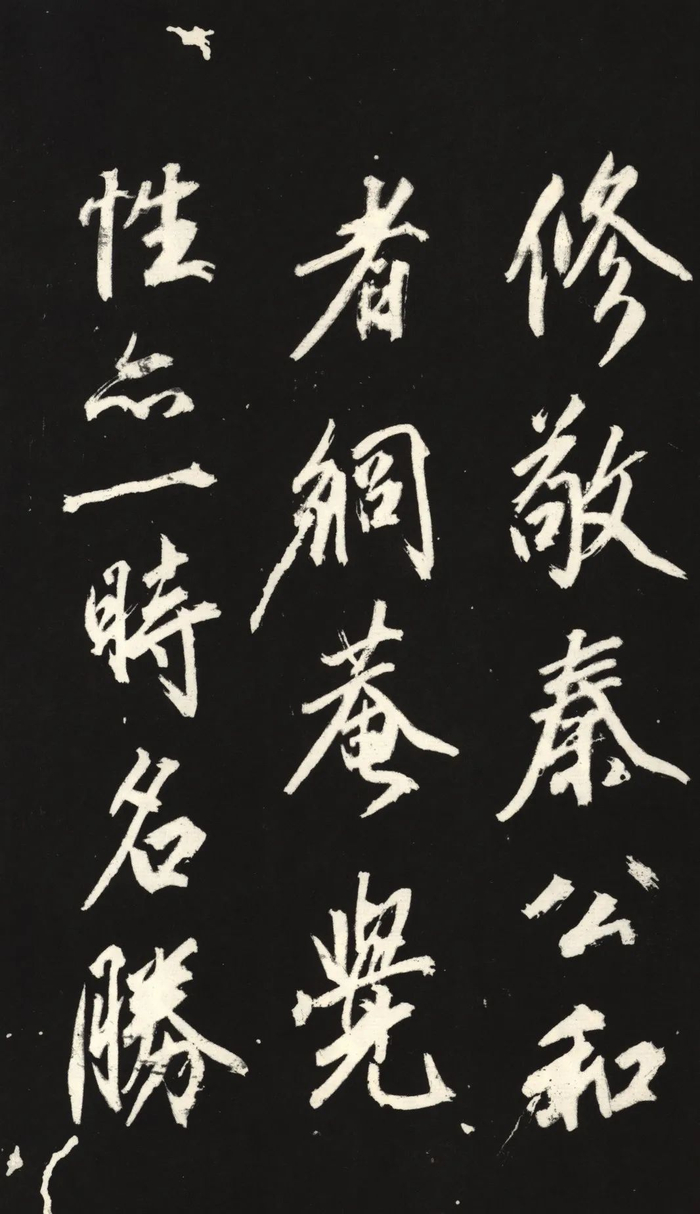 修敬秦公和
者絅菴覺
性亦一時名勝